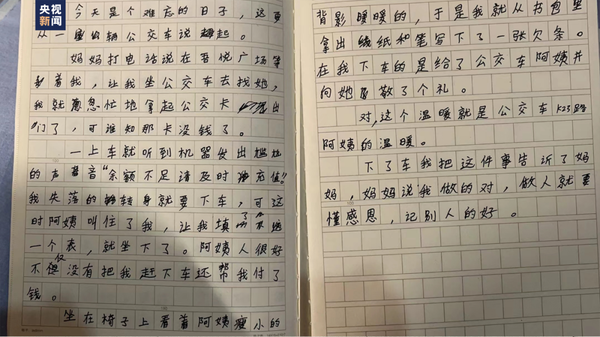 央视新闻
今天是个难忘的日子，这要
从一辆公交车说起。
妈妈打电话说在吾悦广场等
着我，让我坐公交车去找她，
我就急忙地拿起公交卡出
门了，可谁知那卡没钱了。
一上车就听到机器发出尴尬
的声音“余额不足请及时充值！”
我失落的转身就要下车，可这
时阿姨叫住了我，让我填了
一个表，就坐下了。阿姨人很好
不仅没有把我赶下车还帮我付了
钱。
坐在椅子上看着阿姨瘦小的
背影暖暖的，于是我就从书包里
拿出纸和笔写下了一张欠条。
在我下车的是给了公交车阿姨并
向她敬了个礼。
对，这个温暖就是公交车K23路
阿姨的温暖。
下了车我把这件事告诉了妈
妈，妈妈说我做的对，做人就要
懂感恩，记别人的好。